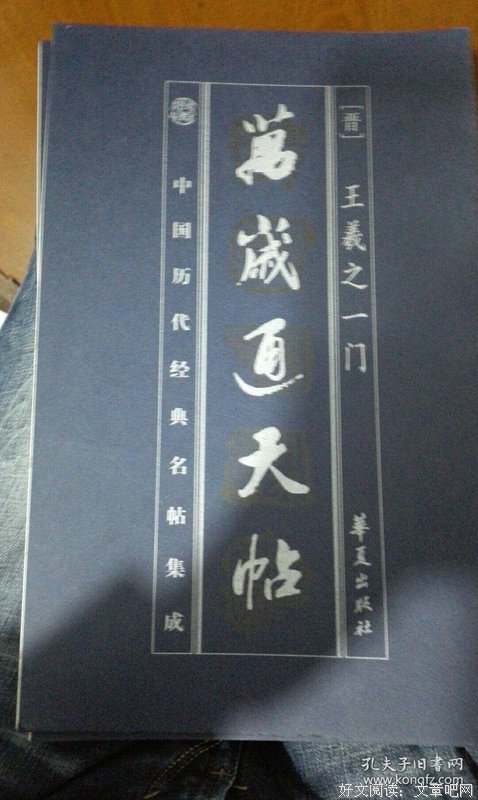 [晋]
王羲之一门
華夏出版社
萬歲通天帖
中国历代经典名帖集成
孔夫子旧书网
www.kongfz.com
好文阅读：文章吧网